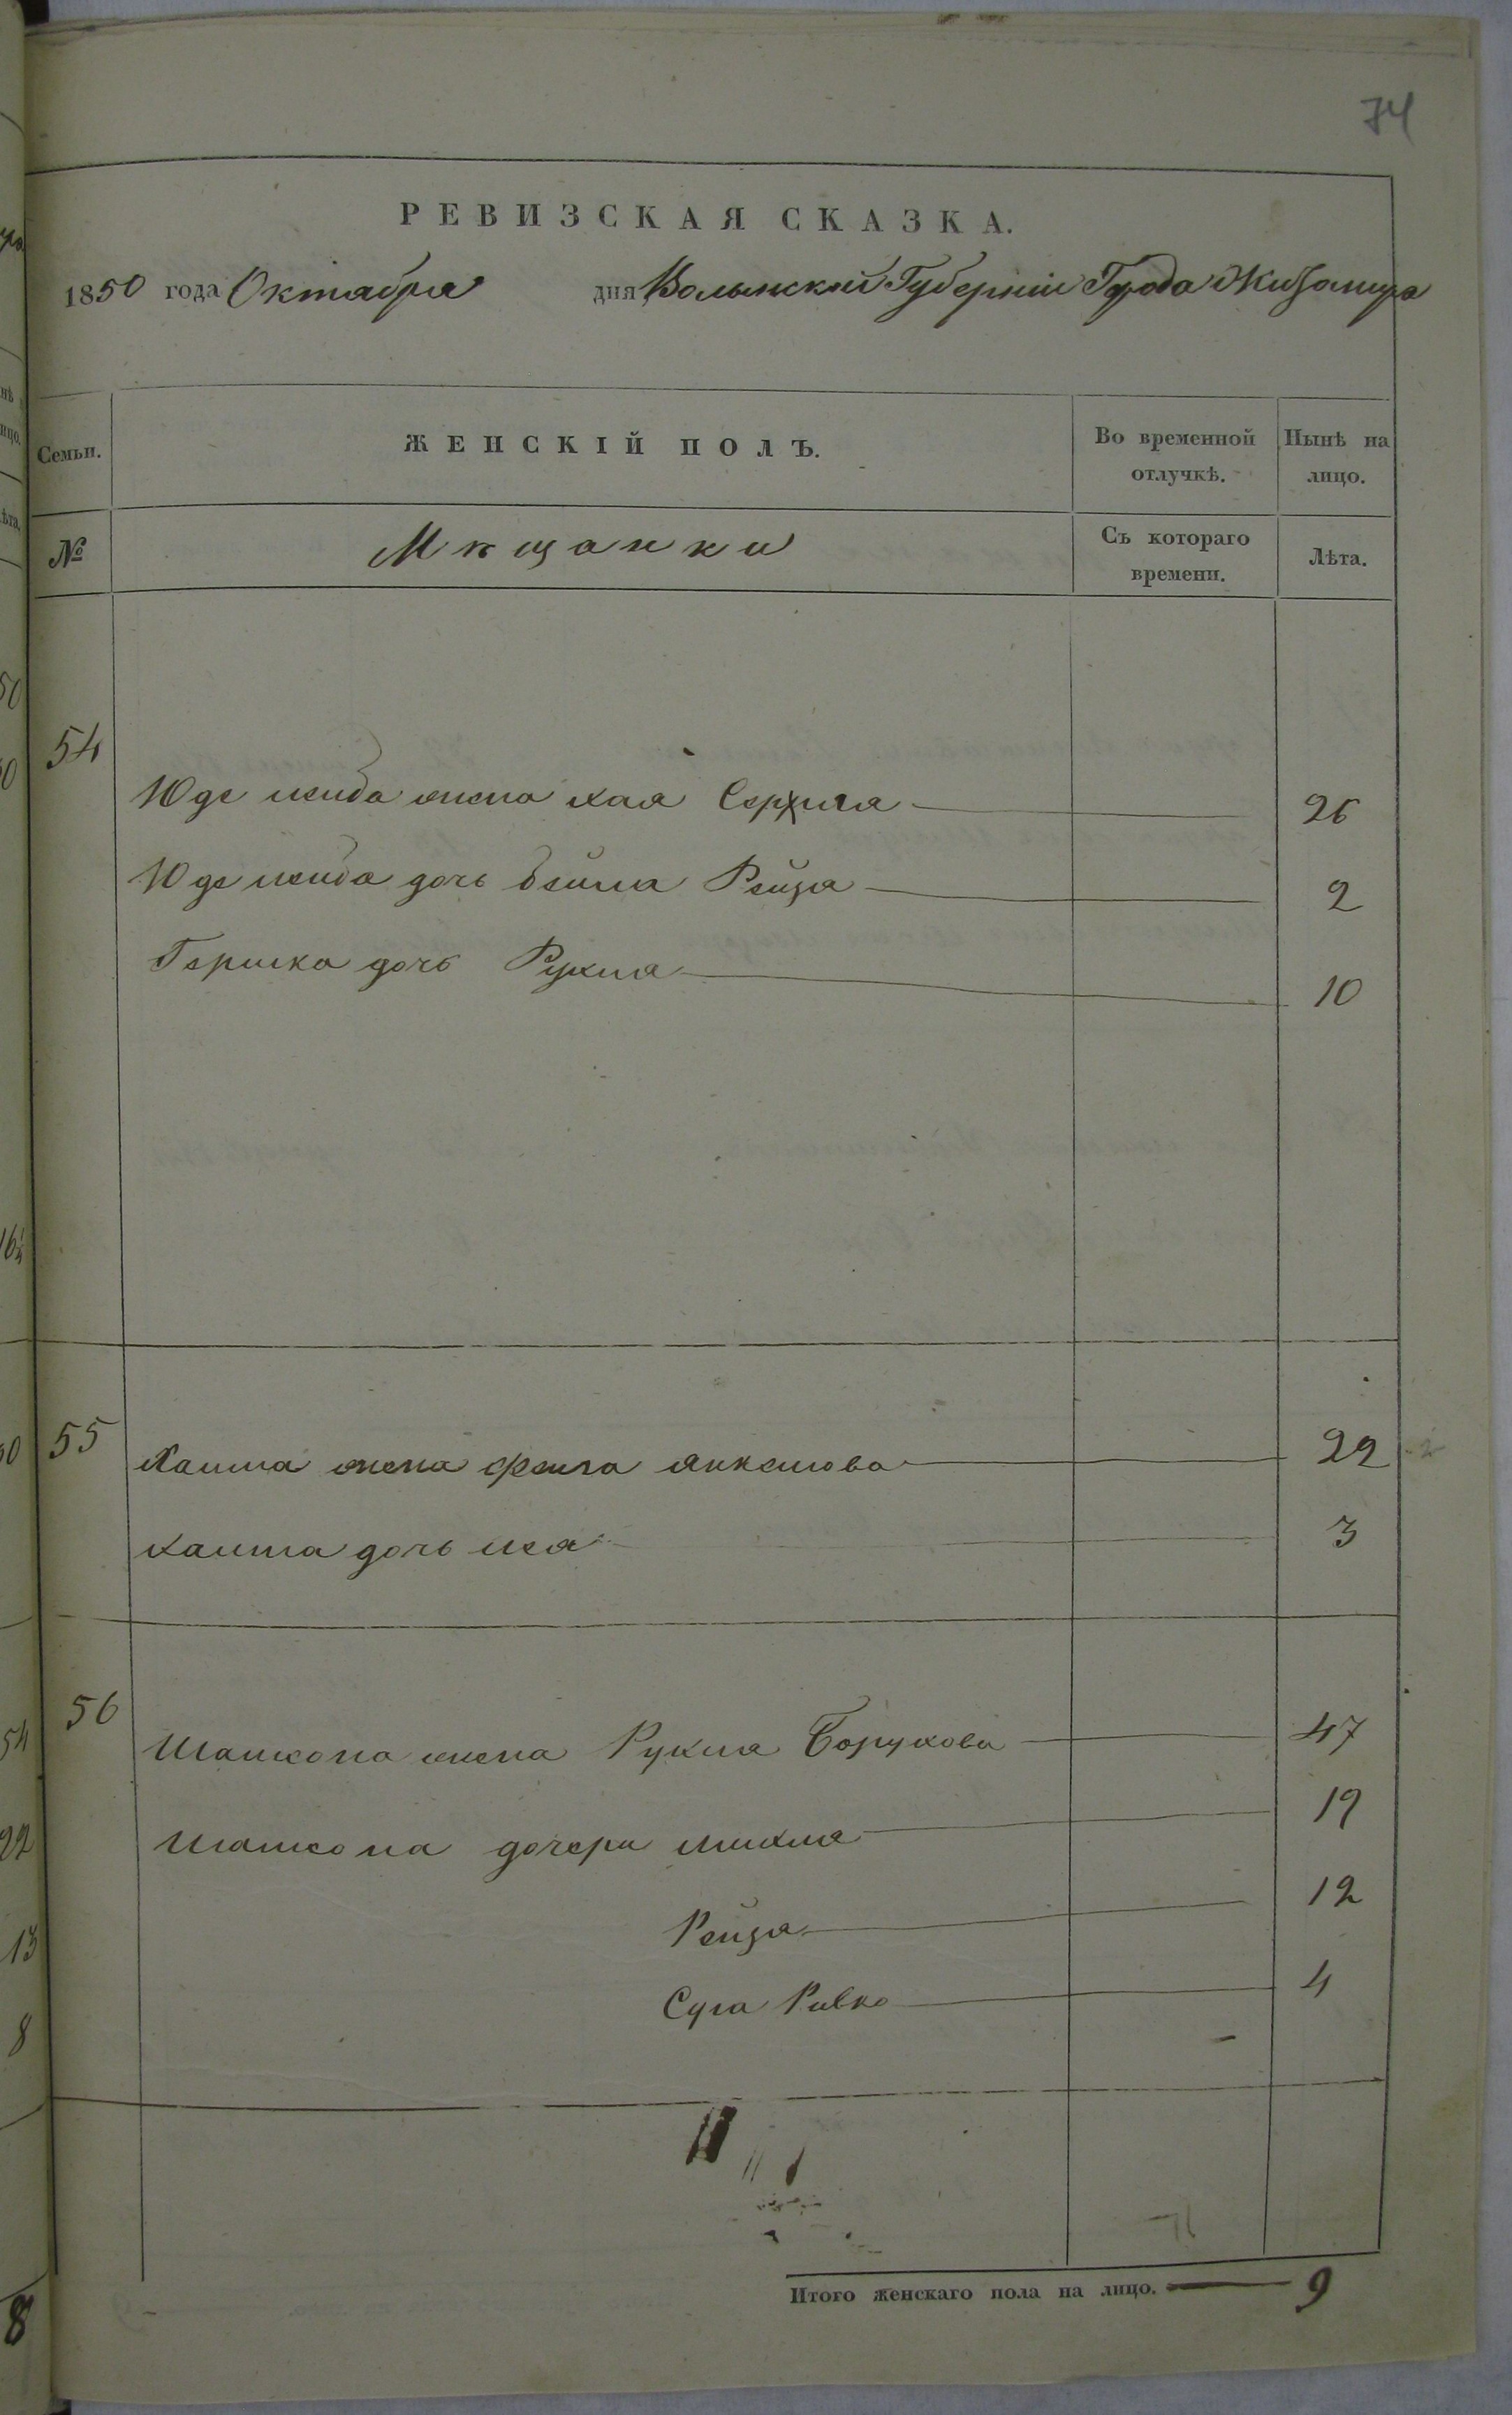 74
РЕВИЗСКАЯ СКАЗКА.
1850 года Октября дня Волынской Губерніи Города Житомира
Семьи. ЖЕНСКІЙ ПОЛЪ. Во временной отлучкѣ. Нынѣ на лицо.
№ Мѣщанки Съ котораго времени. Лѣта.
54
жена Хая 26
дочь Бейла Рейзя 2
Гершка дочь Рухля 10
55
Хаима жена Фейга Янкелова 22
Хаима дочь 3
56
жена Рухля Борухова 47
дочери 19
Рейзя 12
Сура Ривка 4
Итого женскаго пола на лицо. 9